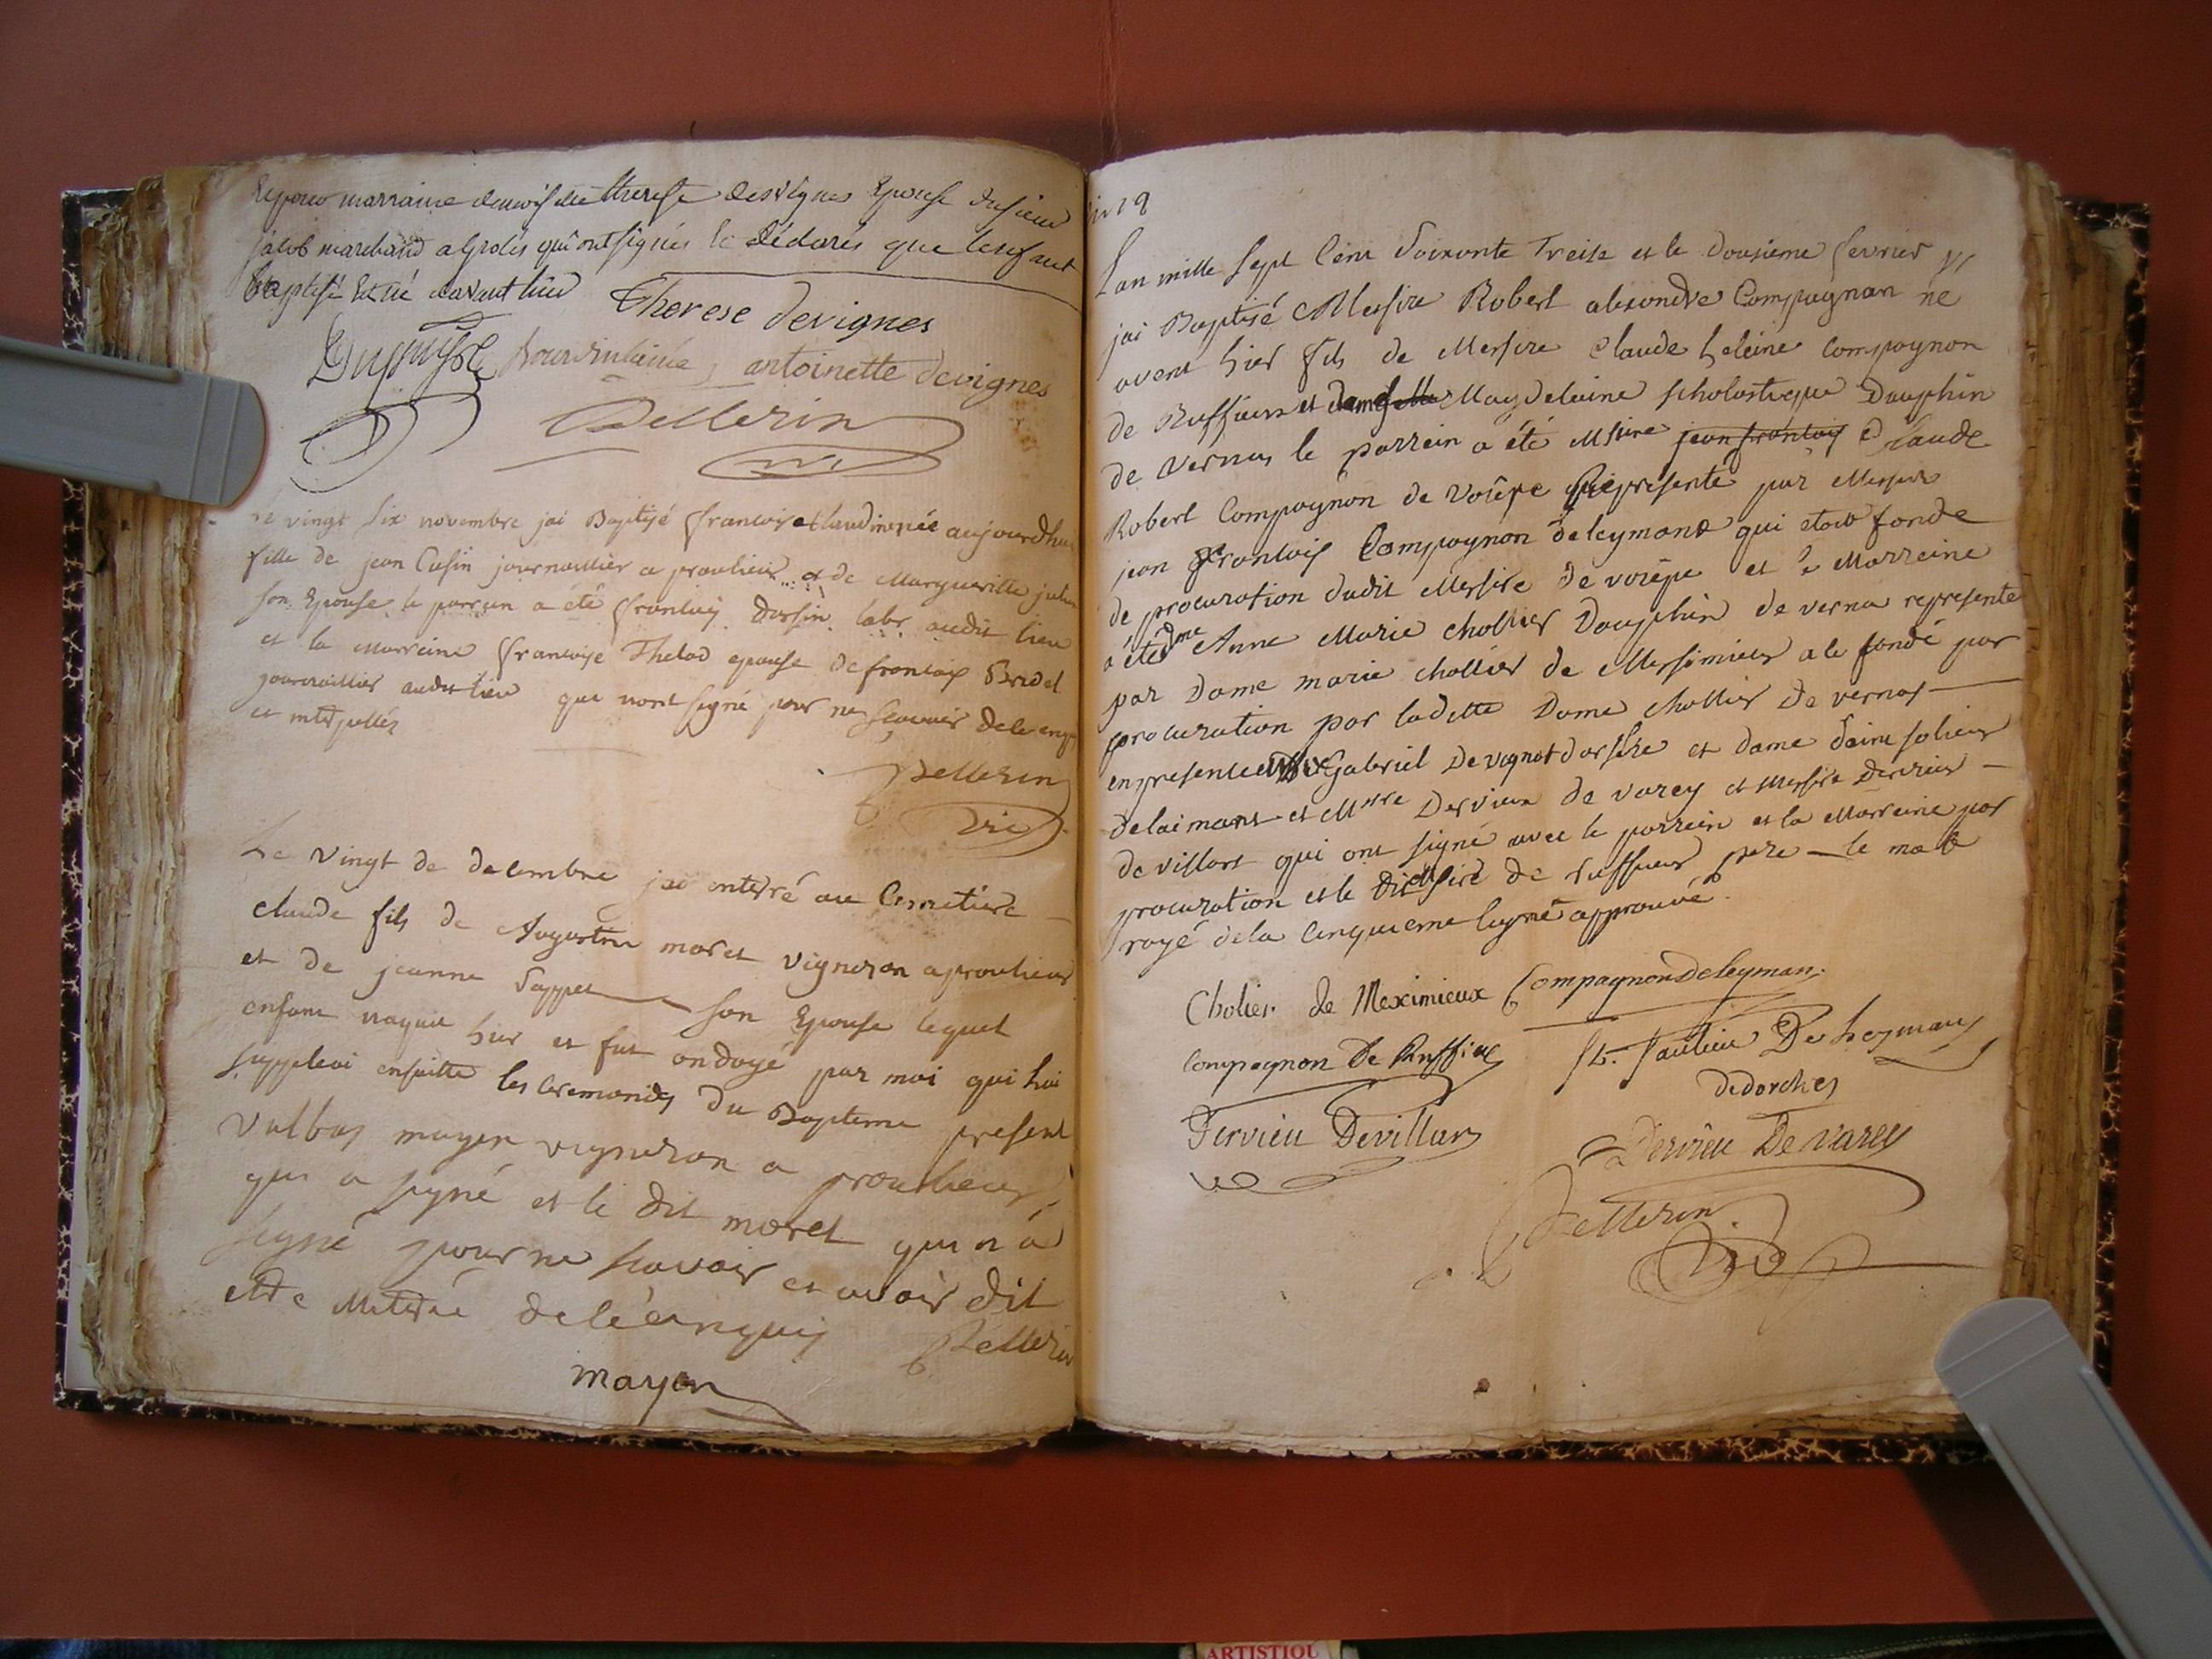 marraine therese desvignes Epouse du sieur
jacob marchand a qui ont signés Et déclarés que lenfant
baptisé Est né davant hier
Therese devignes
antoinette devignes
Pellerin
Le vingt six novembre jai Baptisé francoise née aujourdhui
fille de jean Cusin journallier a proulieu et de Margueritte
son Epouse le parrein a été francois labr audit lieu
et la marreine francoise Thelod epouse de francois Bridel
journallier audit lieu qui nont signé pour ne scavoir de ce enquis
et
Pellerin
Vic
Le vingt de decembre jai enterré au Cimetiere
claude fils de Augustin moret vigneron a proulieu
et de jeanne son Epouse lequel
enfant naquit hier et fut ondoyé par moi qui lui
suppleai ensuitte les Ceremonies du Bapteme present
vulbas mayen vigneron a proulieu
qui a signé et le dit moret qui n'a
signé pour ne scavoir et avoir dit
de ce enquis
Pellerin
mayen
Lan mille Sept Cent Soixante Treize et le douzieme fevrier
jai Baptisé Messire Robert alexandre Compagnon né
avant hier fils de Messire Claude heleine Compagnon
de Ruffieu et dame Magdeleine scholastique Dauphin
de vernas le parrein a été Msire jean francois Claude
Robert Compagnon de Représenté par Messire
jean francois Compagnon deleymont qui etoit fondé
de procuration dudit Messire de et la Marreine
a été Dme Anne Marie chollier Dauphin de verna representé
par Dame marie chollier de Meximieux a le fondé par
procuration par laditte Dame chollier de vernas
en presence de Gabriel et dame
delaimant et Mssre Dervieu de varey et Messire Dervieu
de villars qui ont signé avec le parrein et la Marreine par
procuration et le dit Msire de ruffieu pere le mot
rayé de la Cinquieme ligne approuvé.
Cholier de Meximieux Compagnon de leyman
Compagnon De Ruffieu St. Saulieu De Leymans
de dorches
Dervieu Devillars
Dervieu De varey
Pellerin
Vic
ARTISTIQU